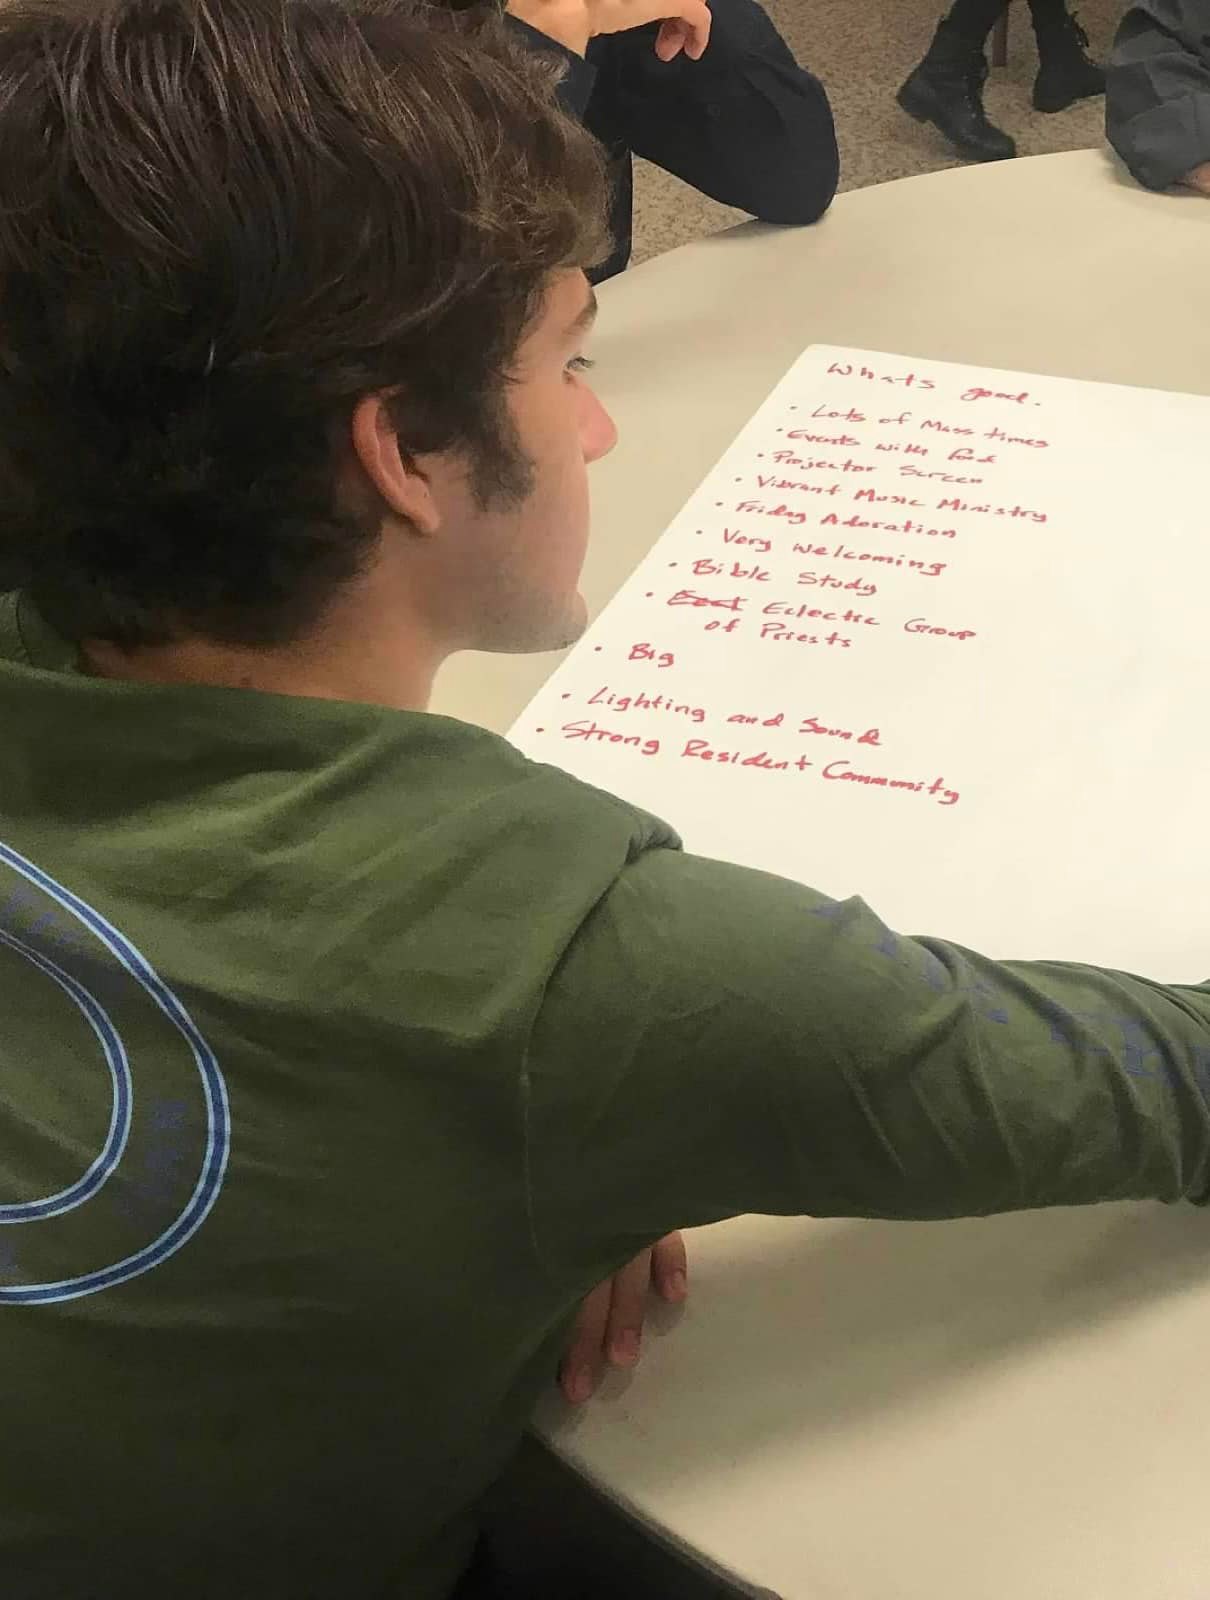 Whats good.
• Lots of Mass times
• Events with food
• Projector Screen
• Vibrant Music Ministry
• Friday Adoration
• Very welcoming
• Bible Study
• Eclectic Group
of Priests
• Big
• Lighting and Sound
• Strong Resident Community